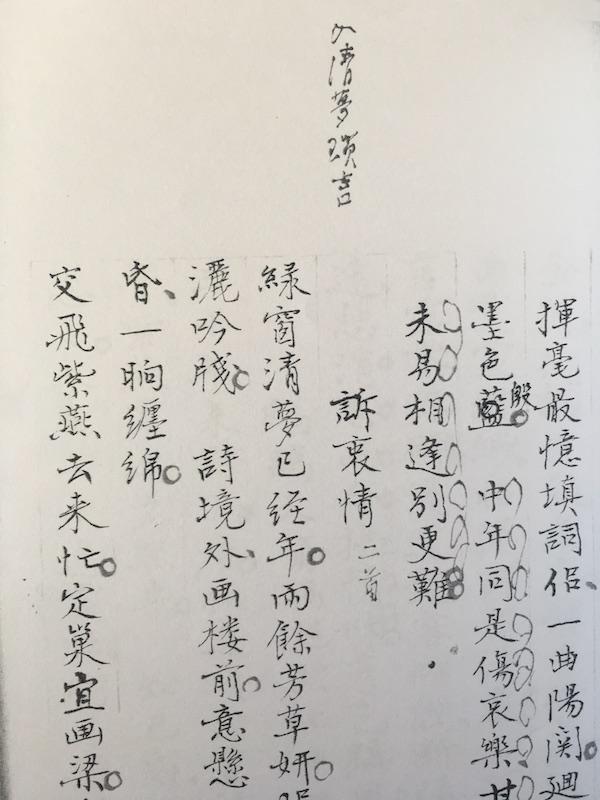 入清夢瑣言
揮毫最憶填詞侶、一曲陽関廻
墨色藍殷。中年同是傷哀樂。
未易相逢別更難
訴衷情 二首
緑窗清夢已経年。雨餘芳草妍。
灑吟牋。詩境外、画楼前。意懸
昏、一晌纏綿。
交飛紫燕去来忙。定巢宜画梁。